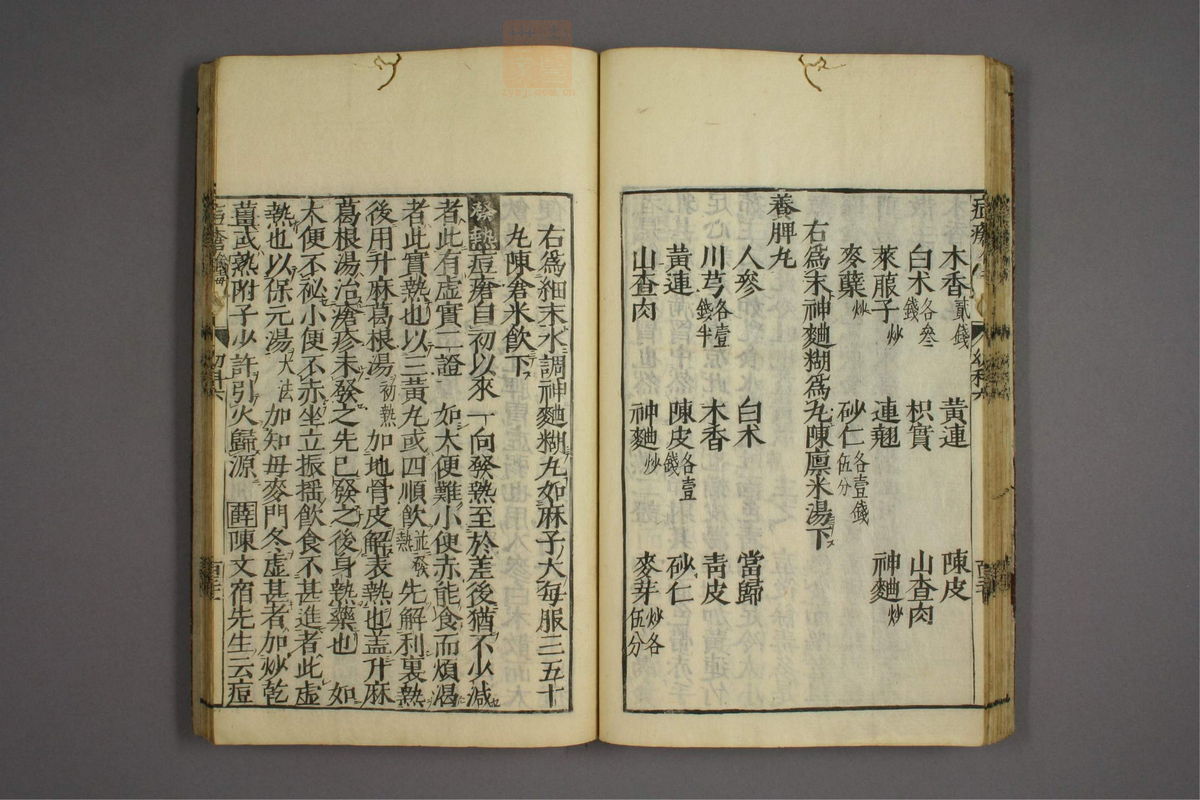 木香貳錢 黃連 陳皮
白术各叁錢 枳實 山查肉
萊菔子炒 連翹 神麯炒
麥蘖炒 砂仁各壹錢伍分
右爲末神麯糊爲丸陳廪米湯下
養脾丸
人參 白术 當歸
川芎各壹錢半 木香 靑皮
黃連 陳皮各壹錢 砂仁
山查肉 神麯炒 麥芽炒各伍分
右爲細末水調神麯糊丸如麻子大每服三五十
丸陳倉米飲下
發熱痘瘡自初以來一向發熱至於差後猶不少減
者此有虛實二證 如大便難小便赤能食而煩渴
者此實熱也以三黃丸或四順飲並發熱先解利裏熱
後用升麻葛根湯初熱加地骨皮解表熱也盖升麻
葛根湯治瘡疹未發之先已發之後身熱藥也 如
大便不祕小便不赤坐立振揺飲食不甚進者此虛
熱也以保元湯大法加知母麥門冬虛甚者加炒乾
薑或熟附子少許引火歸源 薛陳文宿先生云痘